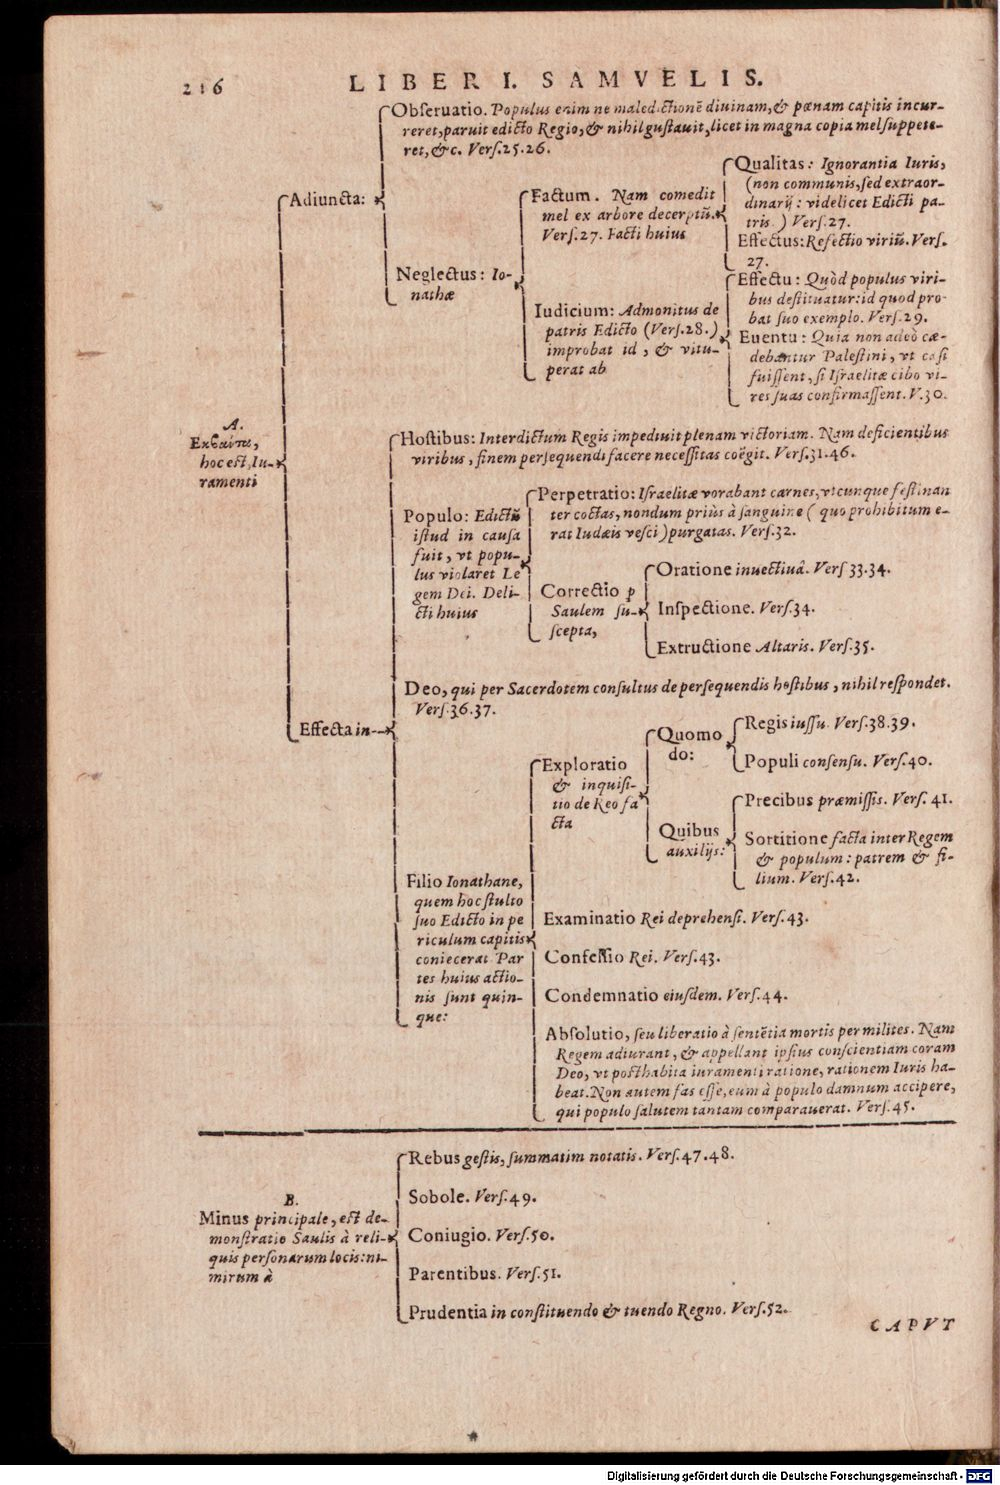 216
LIBER I. SAMVELIS.
Obſeruatio. Populus enim ne maledictionē diuinam, & pœnam capitis incur-
reret, paruit edicto Regio, & nihil guſtauit, licet in magna copia mel ſuppete-
ret, &c. Verſ.25.26.
Adiuncta:
Neglectus: Io-
nathæ
Factum. Nam comedit
mel ex arbore decerptū.
Verſ.27. Facti huius
Qualitas: Ignorantia Iuris,
(non communis, ſed extraor-
dinarij: videlicet Edicti pa-
tris.) Verſ.27.
Effectus: Refectio viriū. Verſ.
27.
Iudicium: Admonitus de
patris Edicto (Verſ.28.)
improbat id, & vitu-
perat ab
Effectu: Quòd populus viri-
bus deſtituatur: id quod pro-
bat ſuo exemplo. Verſ.29.
Euentu: Quia non adeò cæ-
debantur Palæſtini, vt cæſi
fuiſſent, ſi Iſraelitæ cibo vi-
res ſuas confirmaſſent. V.30.
A.
hoc eſt, Iu-
ramenti
Effecta in--
Hoſtibus: Interdictum Regis impediuit plenam victoriam. Nam deficientibus
viribus, finem perſequendi facere neceſſitas coëgit. Verſ.31.46.
Populo: Edictū
iſtud in cauſa
fuit, vt popu-
lus violaret Le
gem Dei. Deli-
cti huius
Perpetratio: Iſraelitæ vorabant carnes, vtcunque feſtinan
ter coctas, nondum priùs à ſanguine (quo prohibitum e-
rat Iudæis veſci) purgatas. Verſ.32.
Correctio p
Saulem ſu-
ſcepta,
Oratione inuectiuâ. Verſ 33.34.
Inſpectione. Verſ.34.
Extructione Altaris. Verſ.35.
Deo, qui per Sacerdotem conſultus de perſequendis hoſtibus, nihil reſpondet.
Verſ.36.37.
Filio Ionathane,
quem hoc ſtulto
ſuo Edicto in pe
riculum capitis
coniecerat Par
tes huius actio-
nis ſunt quin-
que:
Exploratio
& inquiſi-
tio de Reo fa
cta
Quomo
do:
Regis iuſſu. Verſ.38.39.
Populi conſenſu. Verſ.40.
Quibus
auxilijs:
Precibus præmiſſis. Verſ. 41.
Sortitione facta inter Regem
& populum: patrem & fi-
lium. Verſ.42.
Examinatio Rei deprehenſi. Verſ.43.
Confeſſio Rei. Verſ.43.
Condemnatio eiuſdem. Verſ.44.
Abſolutio, ſeu liberatio à ſentētia mortis per milites. Nam
Regem adiurant, & appellant ipſius conſcientiam coram
Deo, vt poſthabita iuramenti ratione, rationem Iuris ha-
beat. Non autem fas eſſe, eum à populo damnum accipere,
qui populo ſalutem tantam comparauerat. Verſ.45.
B.
Minus principale, eſt de-
monſtratio Saulis à reli-
quis perſonarum locis: ni-
mirum à
Rebus geſtis, ſummatim notatis. Verſ.47.48.
Sobole. Verſ.49.
Coniugio. Verſ.50.
Parentibus. Verſ.51.
Prudentia in conſtituendo & tuendo Regno. Verſ.52.
CAPVT
Digitalisierung gefördert durch die Deutsche Forschungsgemeinschaft - DFG